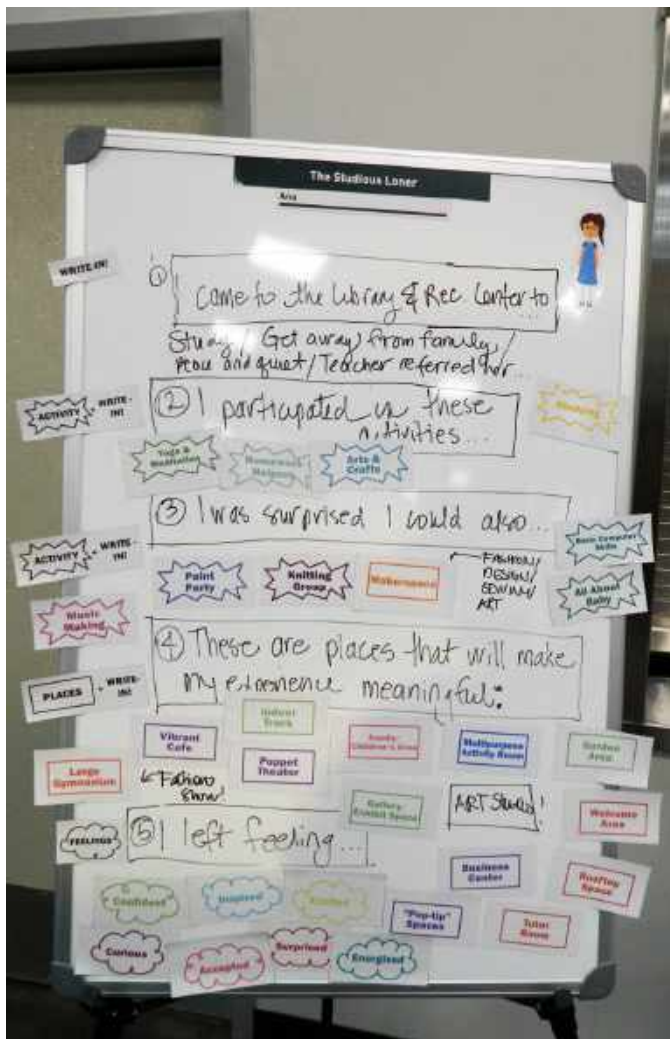 The Studious Loner
Ana
WRITE-IN!
① I come to the Library & Rec Center to
...
Study / Get away from family /
Peace and quiet / Teacher referred her...
ACTIVITY + WRITE-IN!
② I participated in these
activities...
Yoga & Meditation
Homework Helper
Arts & Crafts
③ I was surprised I could also...
ACTIVITY + WRITE-IN!
Paint Party
Knitting Group
Makerspace
← FASHION/
DESIGN/
SEWING/
ART
Basic Computer Skills
All About Baby
Music Making
④ These are places that will make
my experience meaningful:
PLACES + WRITE-IN!
Indoor Track
Vibrant Cafe
Multipurpose Activity Room
Garden Area
Large Gymnasium
Puppet Theater
← Fashion
Show!
Gallery Exhibit Space
ART Studio!
Welcome Area
FEELINGS
⑤ I left feeling...
Business Center
Rooftop Space
Confident
Inspired
"Pop-Up" Spaces
Tutor Room
Curious
Accepted
Surprised
Energized